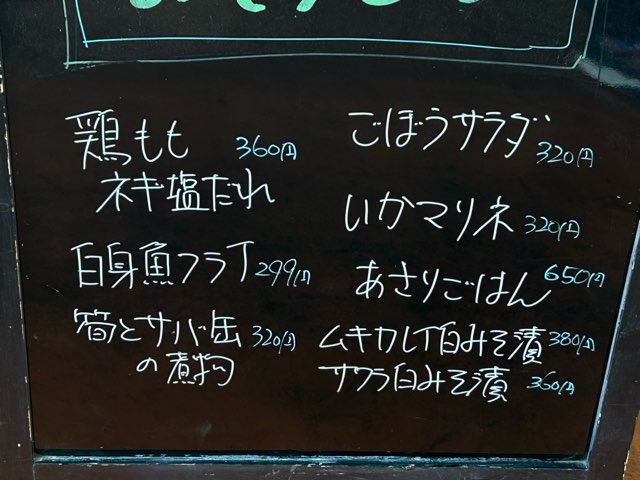 鶏もも 360円
ネギ塩たれ
白身魚フライ 299円
筍とサバ缶 320円
の煮物
ごぼうサラダ 320円
いかマリネ 320円
あさりごはん 650円
ムキカレイ白みそ漬 380円
サワラ白みそ漬 360円